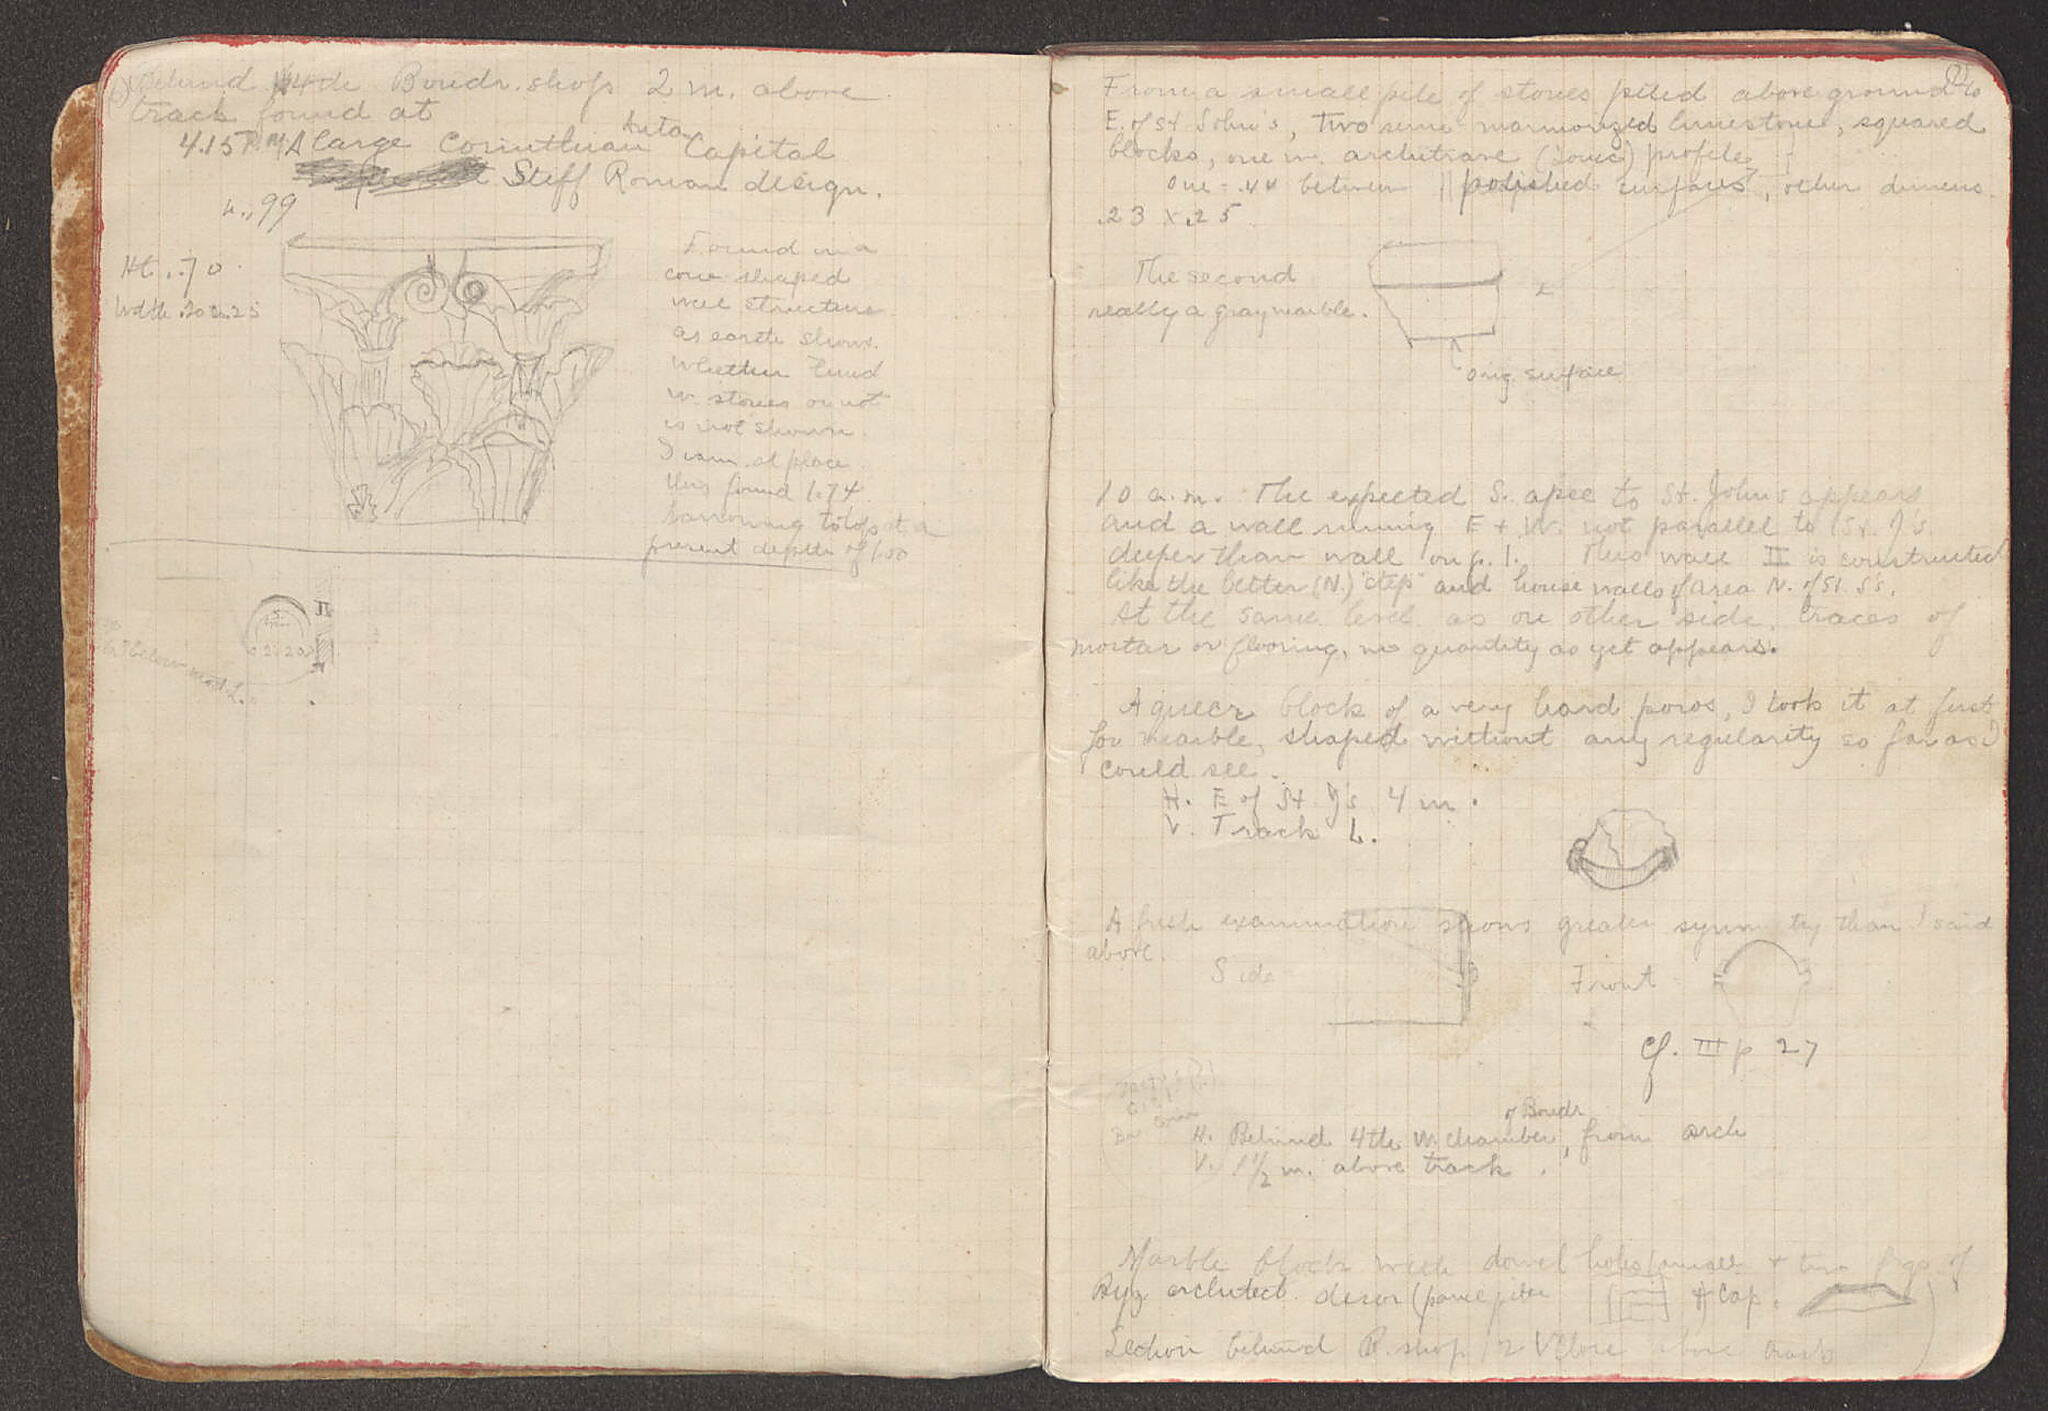 Behind 4th Boudr. shop 2 m. above
track found at
4.15 P.M. A large Corinthian Anta Capital
Stiff Roman design.
.99
Ht. .70
Wdth .20 .25
Found in a
cone shaped
well structure
as earth shows.
Whether lined
w. stones or not
is not shown.
Diam. at place
this found 1.74
narrowing to top at a
present depth of 1.50
II
below
From a small pile of stones piled above ground to
E. of St John's, two semi-marmorized limestone, squared
blocks, one w. architrave (Ionic) profile,
One = .44 between || polished surfaces, other dimens.
.23 x .25
The second
really a gray marble.
Orig. surface
10 a.m. The expected S. apse to St. John's appears
and a wall running E + W. not parallel to St. J's
deeper than wall on p. 1. This wall II is constructed
like the better (N.) "step" and house walls of area N. of St. J's.
At the same level as on other side, traces of
mortar or flooring, no quantity as yet appears.
A queer block of a very hard poros, I took it at first
for marble, shaped without any regularity so far as I
could see.
H. E of St J's 4 m.
V. Track L.
A fresh examination shows greater symmetry than I said
above.
Side
Front
Cf. III p 27
of Boudr
H. Behind 4th W. chamber, from arch
V. 1 1/2 m. above track.
Marble block with dowel holes + two frgs of
Byz architect. decor (panel
Cap.
Section behind B. shop above track